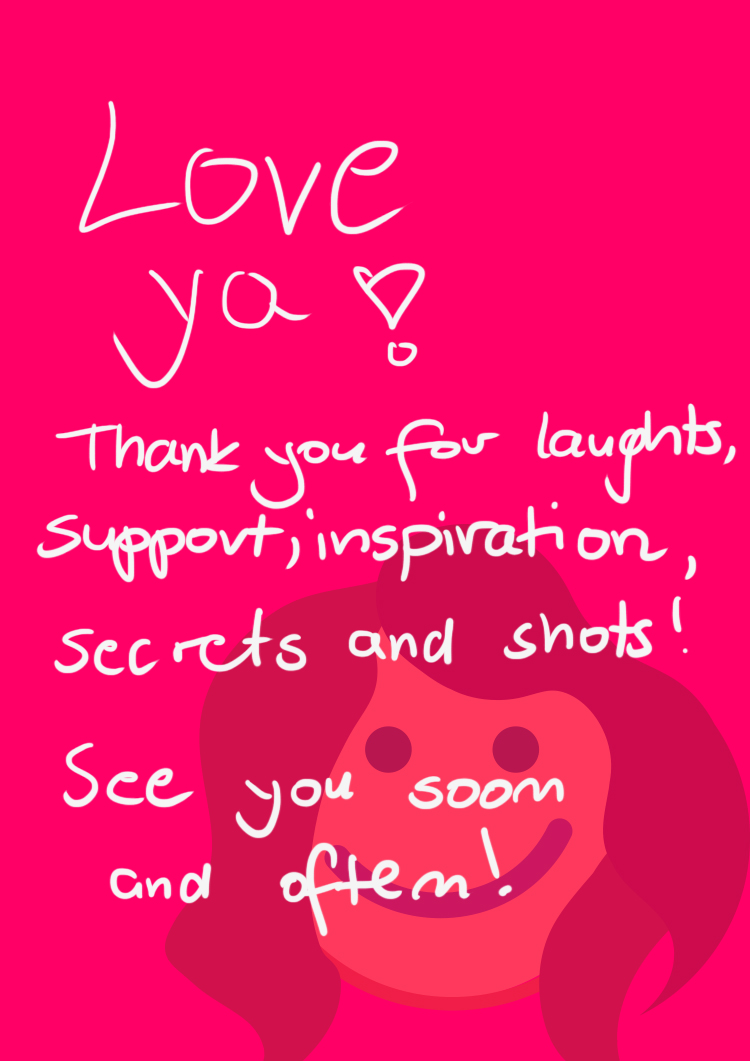 Love
ya!
Thank you for laughts,
support, inspiration,
secrets and shots!
See you soon
and often!